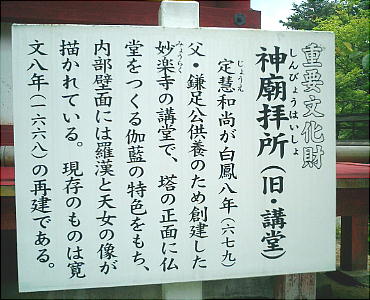 重要文化財
しんびょうはいしょ
神廟拝所(旧・講堂)
じょうえ
定慧和尚が白鳳八年(六七九)
父・鎌足公供養のため創建した
みょうらく
妙楽寺の講堂で、塔の正面に仏
堂をつくる伽藍の特色をもち、
内部壁面には羅漢と天女の像が
描かれている。現存のものは寛
文八年(一六六八)の再建である。